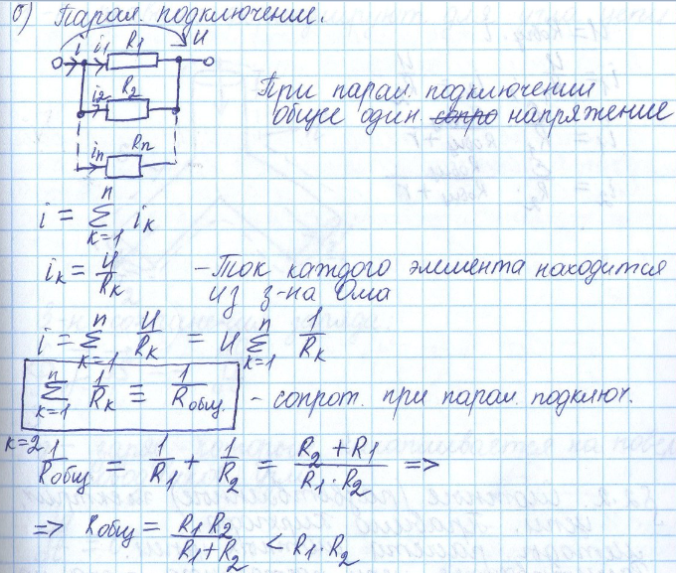 б) Парал. подключение.
i i₁ R1 U
i₂ R₂
iₙ Rₙ
При парал. подключении
общее один. сопро напряжение
i = Σⁿₖ₌₁ iₖ
iₖ = U/Rₖ - Ток каждого элемента находится
из з-на Ома
i = Σⁿₖ₌₁ U/Rₖ = U Σⁿₖ₌₁ 1/Rₖ
Σⁿₖ₌₁ 1/Rₖ ≡ 1/Rобщ. - сопрот. при парал. подключ.
к=2 1/Rобщ = 1/R1 + 1/R₂ = (R₂ + R1)/(R1 · R₂) =>
=> Rобщ = (R1 R₂)/(R1 + R₂) < R1 · R₂